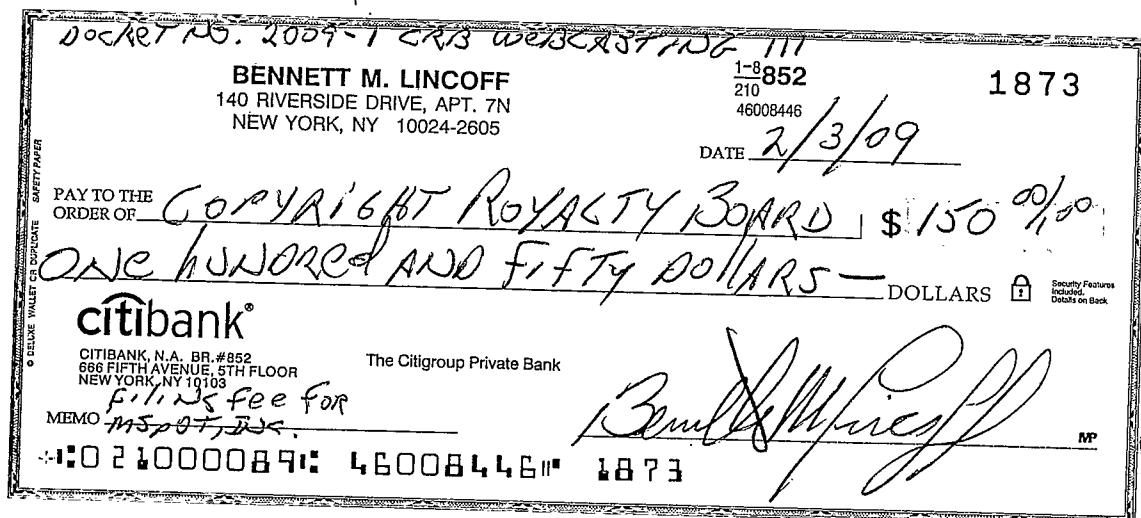 DOCKET NO. 2009-1 CRB WEBCASTING III
BENNETT M. LINCOFF
140 RIVERSIDE DRIVE, APT. 7N
NEW YORK, NY 10024-2605
1-8
210
852
46008446
1873
DATE 2/3/09
SAFETY PAPER
© DELUXE WALLET OR DUPLICATE
PAY TO THE
ORDER OF COPYRIGHT ROYALTY BOARD $ 150 00/00
ONE HUNDRED AND FIFTY DOLLARS— DOLLARS
Security Features
Included.
Details on Back
citibank®
CITIBANK, N.A. BR.#852
666 FIFTH AVENUE, 5TH FLOOR
NEW YORK, NY 10103
The Citigroup Private Bank
Filing fee for
MEMO MSPOT, INC.
Bennett M Lincoff
MP
⑆021000089⑆ 46008446⑈ 1873